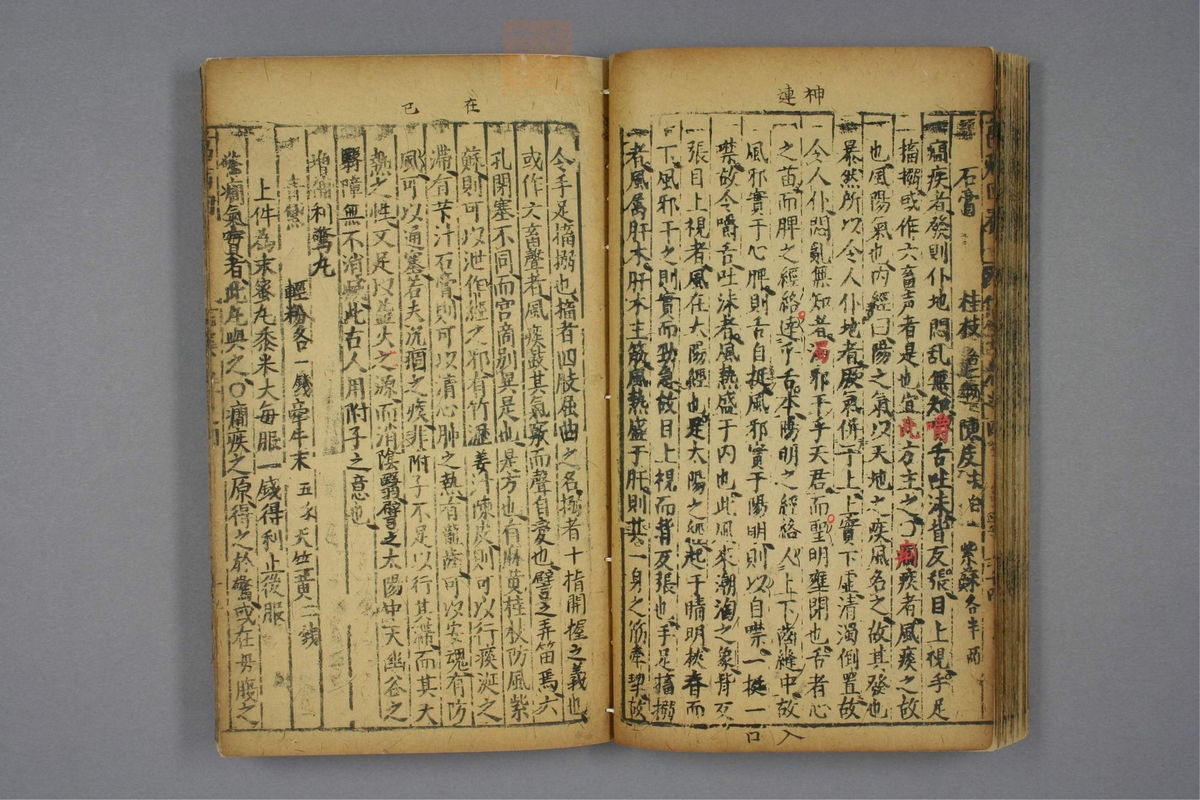 神連
石膏 桂枝 陳皮去白一 紫蘇各半兩
癇疾者發則仆地悶乱無知嚼舌吐沫背反張目上視手足
搐搦或作六畜声者是也宜此方主之〇癇疾者風痰之故
也風陽氣也内經曰陽之氣以天地之疾風名之故其發也
暴然所以令人仆地者厥氣併于上上實下虚清濁倒置故
令人仆悶亂無知者濁邪干乎天君而聖明壅閉也舌者心
之苗而脾之經絡連于舌本陽明之經絡人上下齒縫中故
風邪實于心脾則舌自挺風邪實于陽明則以自噤一挺一
噤故令嚼舌吐沫者風熱盛于内也此風來潮淘之象背反
張目上視者風在大陽經也足太陽之經起于睛明挾脊而
下風邪干之則實而勁急故目上視而背反張也手足搐搦
者風属肝木肝木主筋風熱盛于肝則其一身之筋牽掣故
入口
在已
令手足搐搦也搐者四肢屈曲之名搦者十指開握之義也
或作六畜聲者風痰鼓其氣竅而聲自変也譬之弄笛焉六
孔閉塞不同而宫商别異是也是方也有麻黄桂枝防風紫
蘇則可以泄作經之邪有竹瀝姜汁陳皮則可以行痰涎之
滞有苄汁石膏則可以清心肺之熱有齒可以安魂有防
風可以通塞若夫沉痼之痰非附子不足以行其滯而其大
熱之性又足以益火之源而消陰翳譬之太陽中天幽谷之
翳障無不消此古人用附子之意也
利驚丸
青黛 輕粉各一錢牽牛末五 天竺黄二錢
上件為末蜜丸黍米大每服一錢得利止後服
驚癇氣實者此丸與之〇癇疾之原得之於驚或在母腹之